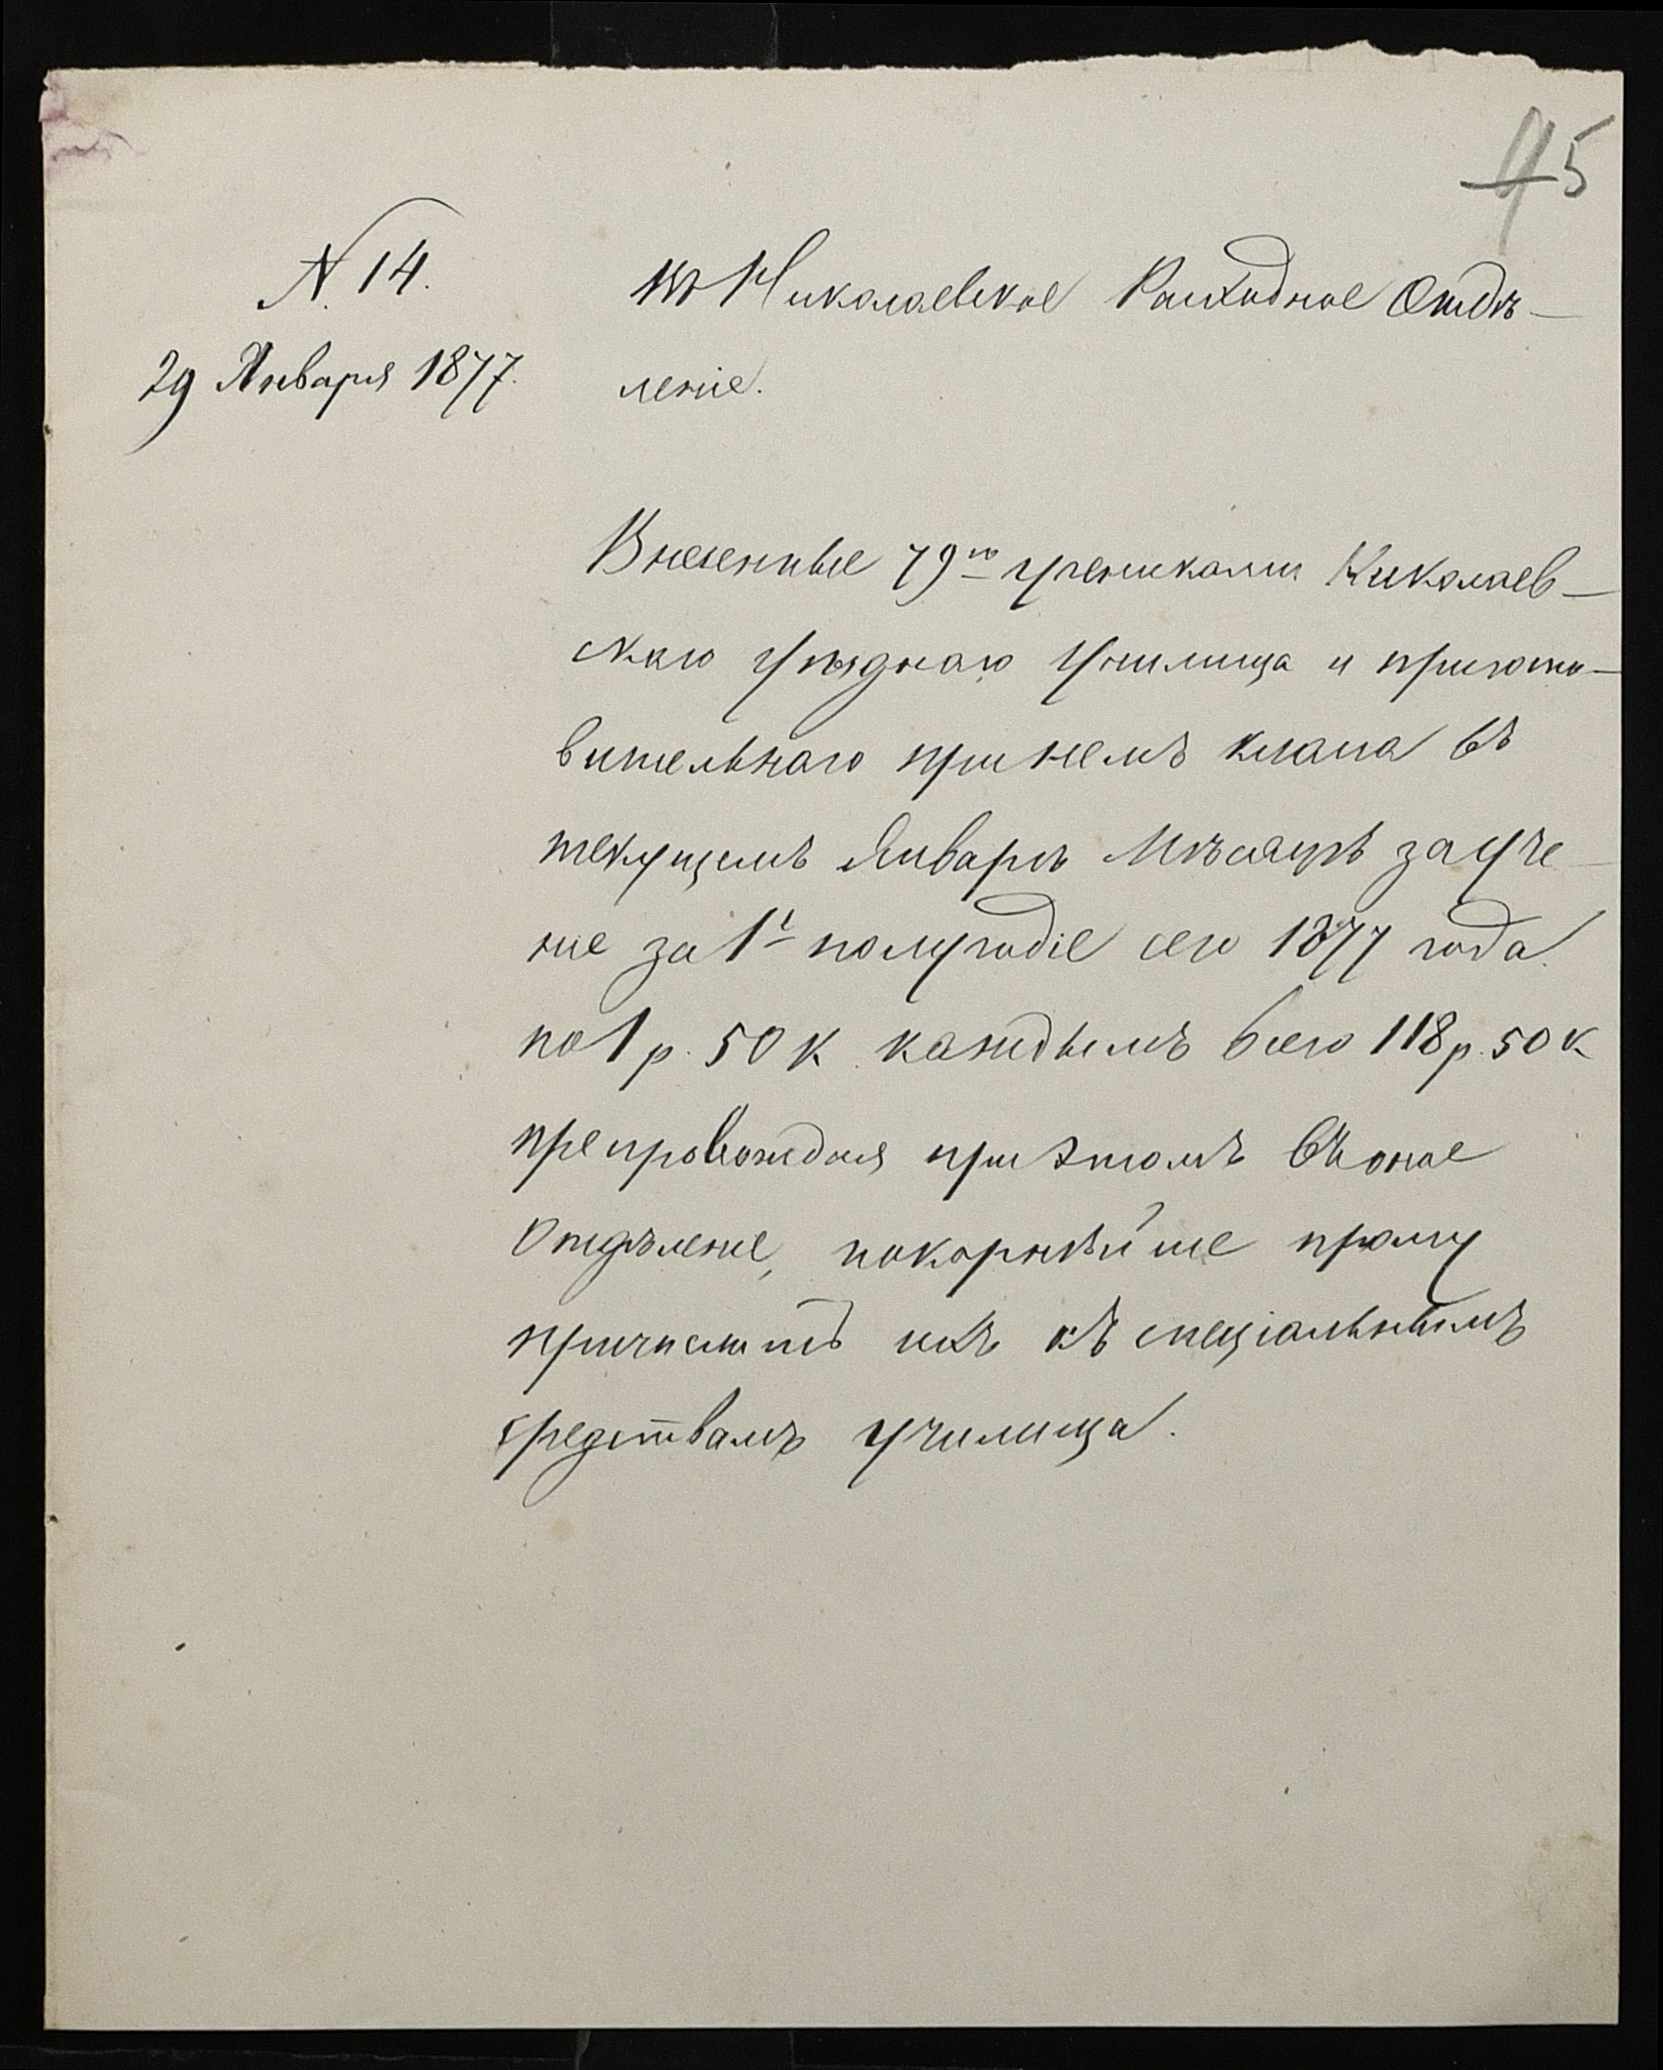 5
N. 14.
29 Января 1877.
Въ Николаевское Расходное Отдѣ-
леніе.
Внесенные 79ю учениками Николаев-
скаго уѣзднаго училища и пригото-
вительнаго при немъ класса въ
текущемъ Январѣ Мѣсяцѣ за уче-
ніе за 1е полугодіе сего 1877 года
по 1 р. 50 к каждымъ всего 118 р. 50 к
препровождая при этомъ въ оное
Отдѣленіе, покорнѣйше прошу
причислить ихъ къ спеціальнымъ
средствамъ училища.